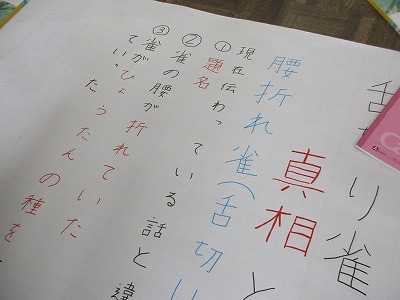 舌切り雀
真相と
腰折れ雀(舌切り
現在伝わっている話と違
①題名
②雀の腰が折れていた
③雀がひょうたんの種を
ていった